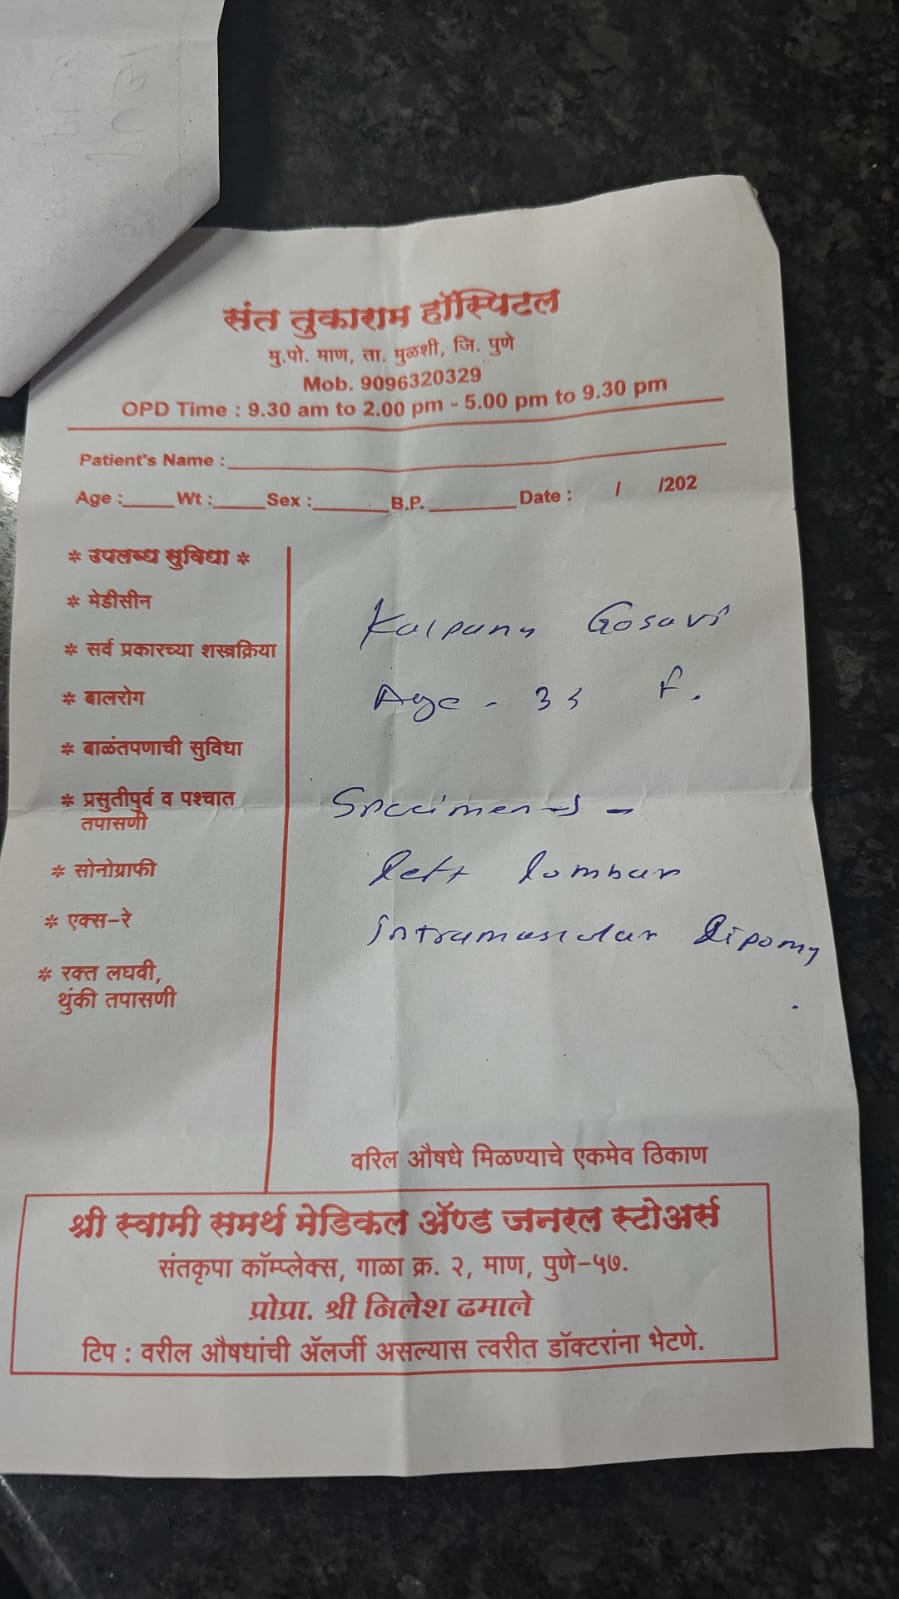 संत तुकाराम हॉस्पिटल
मु.पो. माण, ता. मुळशी, जि. पुणे
Mob. 9096320329
OPD Time : 9.30 am to 2.00 pm - 5.00 pm to 9.30 pm
Patient's Name :
Age : Wt : Sex : B.P. Date : / /202
* उपलब्ध सुविधा *
* मेडीसीन
* सर्व प्रकारच्या शस्त्रक्रिया
* बालरोग
* बाळंतपणाची सुविधा
* प्रसुतीपुर्व व पश्चात
तपासणी
* सोनोग्राफी
* एक्स-रे
* रक्त लघवी,
थुंकी तपासणी
Kalpana Gosavi
Age - F.
Specimen -
left lumbar
intramuscular lipoma
वरिल औषधे मिळण्याचे एकमेव ठिकाण
श्री स्वामी समर्थ मेडिकल ॲण्ड जनरल स्टोअर्स
संतकृपा कॉम्प्लेक्स, गाळा क्र. २, माण, पुणे-५७.
प्रोप्रा. श्री निलेश ढमाले
टिप : वरील औषधांची ॲलर्जी असल्यास त्वरीत डॉक्टरांना भेटणे.